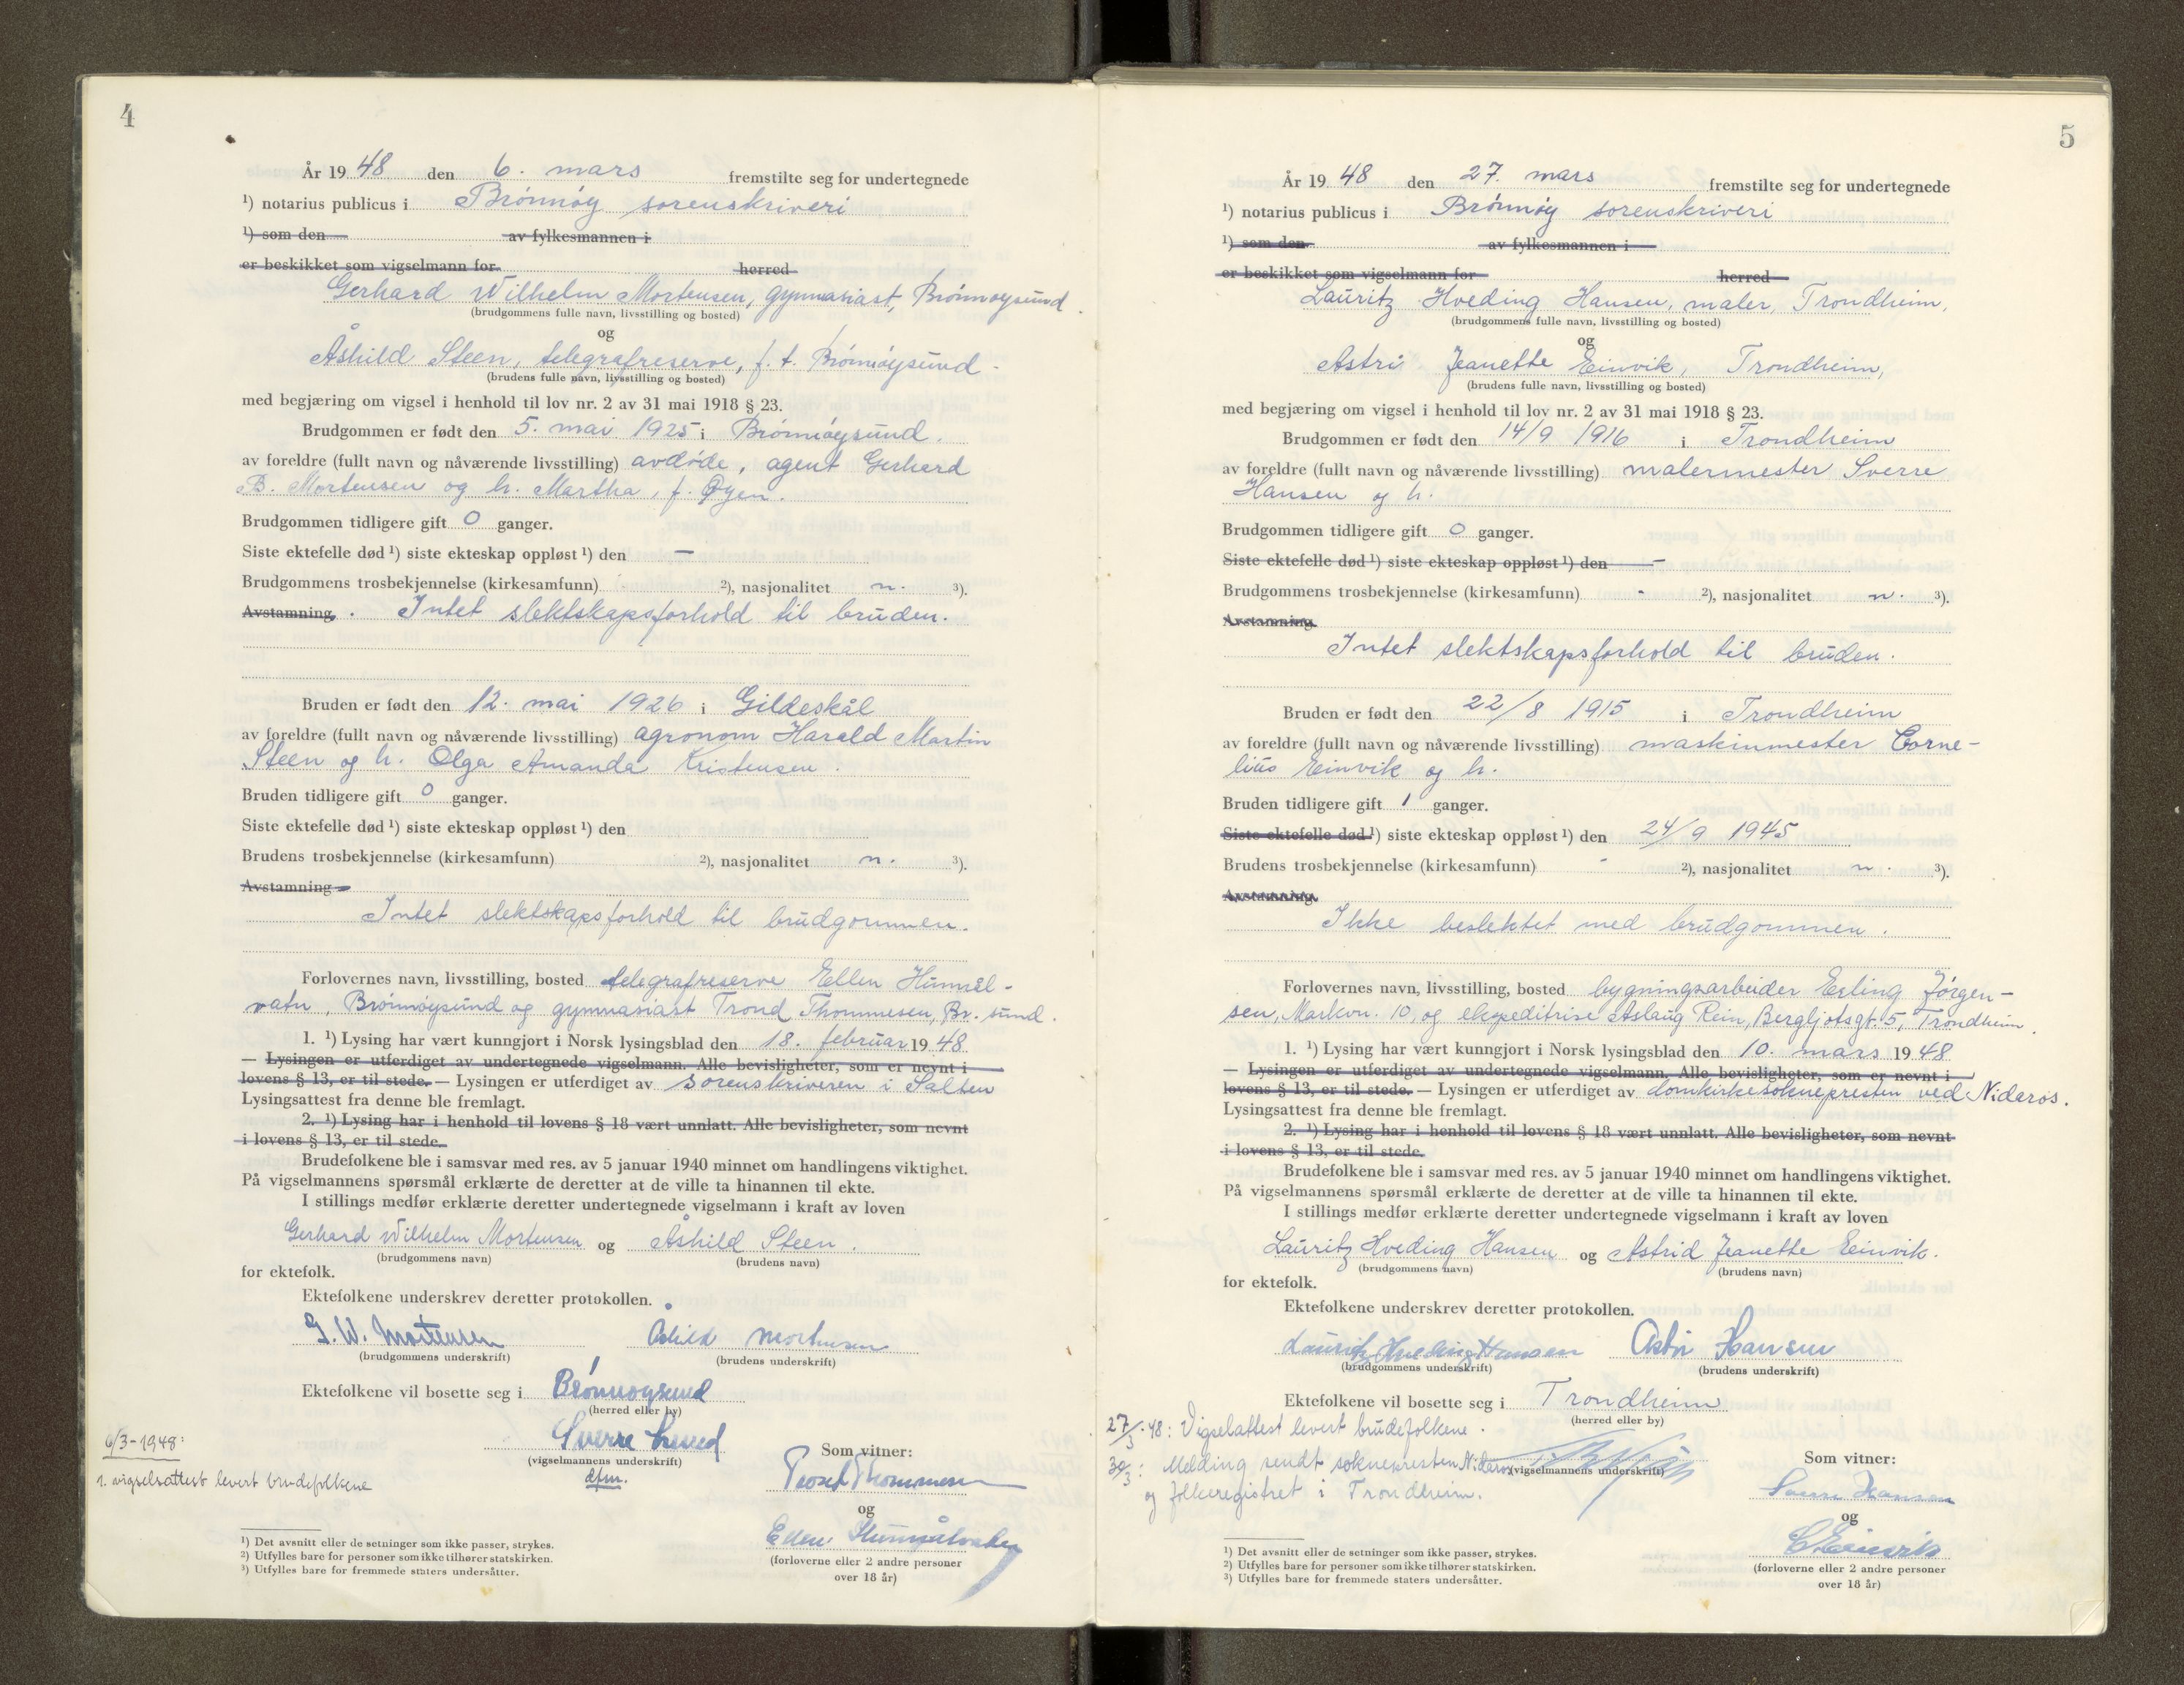 4
År 1948 den 6. mars fremstilte seg for undertegnede
¹) notarius publicus i Brønnøy sorenskriveri
¹) som den av fylkesmannen i
er beskikket som vigselmann for herred
Gerhard Wilhelm Mortensen, gymnasiast, Brønnøysund.
(brudgommens fulle navn, livsstilling og bosted)
og
Åshild Steen, telegrafreserve, f. t. Brønnøysund.
(brudens fulle navn, livsstilling og bosted)
med begjæring om vigsel i henhold til lov nr. 2 av 31 mai 1918 § 23.
Brudgommen er født den 5. mai 1925 i Brønnøysund.
av foreldre (fullt navn og nåværende livsstilling) avdøde, agent Gerhard
B. Mortensen og h. Martha, f. Øyen.
Brudgommen tidligere gift 0 ganger.
Siste ektefelle død ¹) siste ekteskap oppløst ¹) den —
Brudgommens trosbekjennelse (kirkesamfunn) ²), nasjonalitet n. ³).
Avstamning. Intet slektskapsforhold til bruden.
Bruden er født den 12. mai 1926 i Gildeskål
av foreldre (fullt navn og nåværende livsstilling) agronom Harald Martin
Steen og h. Olga Amanda Kristensen.
Bruden tidligere gift 0 ganger.
Siste ektefelle død ¹) siste ekteskap oppløst ¹) den
Brudens trosbekjennelse (kirkesamfunn) ²), nasjonalitet n. ³).
Avstamning
Intet slektskapsforhold til brudgommen.
Forlovernes navn, livsstilling, bosted telegrafreserve Ellen Hummel-
vatn, Brønnøysund og gymnasiast Trond Thommesen, Br. sund.
1. ¹) Lysing har vært kunngjort i Norsk lysingsblad den 18. februar 1948
— Lysingen er utferdiget av undertegnede vigselmann. Alle bevisligheter, som er nevnt i
lovens § 13, er til stede. — Lysingen er utferdiget av sorenskriveren i Salten
Lysingsattest fra denne ble fremlagt.
2. ¹) Lysing har i henhold til lovens § 18 vært unnlatt. Alle bevisligheter, som nevnt
i lovens § 13, er til stede.
Brudefolkene ble i samsvar med res. av 5 januar 1940 minnet om handlingens viktighet.
På vigselmannens spørsmål erklærte de deretter at de ville ta hinannen til ekte.
I stillings medfør erklærte deretter undertegnede vigselmann i kraft av loven
Gerhard Wilhelm Mortensen og Åshild Steen.
(brudgommens navn) (brudens navn)
for ektefolk.
Ektefolkene underskrev deretter protokollen.
G. W. Mortensen Åshild Mortensen
(brudgommens underskrift) (brudens underskrift)
Ektefolkene vil bosette seg i Brønnøysund
(herred eller by)
6/3-1948:
1. vigselsattest levert brudefolkene
Sverre
(vigselmannens underskrift)
dfm.
Som vitner:
Trond Thommesen
og
Ellen
(forloverne eller 2 andre personer
over 18 år)
¹) Det avsnitt eller de setninger som ikke passer, strykes.
²) Utfylles bare for personer som ikke tilhører statskirken.
³) Utfylles bare for fremmede staters undersåtter.
5
År 1948 den 27. mars fremstilte seg for undertegnede
¹) notarius publicus i Brønnøy sorenskriveri
¹) som den av fylkesmannen i
er beskikket som vigselmann for herred
Lauritz Hveding Hansen, maler, Trondheim,
(brudgommens fulle navn, livsstilling og bosted)
og
Astri Jeanette Einvik, Trondheim,
(brudens fulle navn, livsstilling og bosted)
med begjæring om vigsel i henhold til lov nr. 2 av 31 mai 1918 § 23.
Brudgommen er født den 14/9 1916 i Trondheim
av foreldre (fullt navn og nåværende livsstilling) malermester Sverre
Hansen og h.
Brudgommen tidligere gift 0 ganger.
Siste ektefelle død ¹) siste ekteskap oppløst ¹) den —
Brudgommens trosbekjennelse (kirkesamfunn) - ²), nasjonalitet n. ³).
Avstamning.
Intet slektskapsforhold til bruden.
Bruden er født den 22/8 1915 i Trondheim
av foreldre (fullt navn og nåværende livsstilling) maskinmester Corne-
lius Einvik og h.
Bruden tidligere gift 1 ganger.
Siste ektefelle død ¹) siste ekteskap oppløst ¹) den 24/9 1945
Brudens trosbekjennelse (kirkesamfunn) - ²), nasjonalitet n. ³).
Avstamning.
Ikke beslektet med brudgommen.
Forlovernes navn, livsstilling, bosted bygningsarbeider Erling Jørgen-
sen, Markvn. 10, og ekspeditrise Aslaug Rein, Bergljotsgt. 5, Trondheim.
1. ¹) Lysing har vært kunngjort i Norsk lysingsblad den 10. mars 1948
— Lysingen er utferdiget av undertegnede vigselmann. Alle bevisligheter, som er nevnt i
lovens § 13, er til stede. — Lysingen er utferdiget av domkirkesoknepresten ved Nidaros.
Lysingsattest fra denne ble fremlagt.
2. ¹) Lysing har i henhold til lovens § 18 vært unnlatt. Alle bevisligheter, som nevnt
i lovens § 13, er til stede.
Brudefolkene ble i samsvar med res. av 5 januar 1940 minnet om handlingens viktighet.
På vigselmannens spørsmål erklærte de deretter at de ville ta hinannen til ekte.
I stillings medfør erklærte deretter undertegnede vigselmann i kraft av loven
Lauritz Hveding Hansen og Astrid Jeanette Einvik.
(brudgommens navn) (brudens navn)
for ektefolk.
Ektefolkene underskrev deretter protokollen.
Lauritz Hveding Hansen Astri Hansen
(brudgommens underskrift) (brudens underskrift)
Ektefolkene vil bosette seg i Trondheim
(herred eller by)
27/3-48: Vigselattest levert brudefolkene.
30/3: Melding sendt soknepresten Nidaros
og folkeregistret i Trondheim.
(vigselmannens underskrift)
Som vitner:
Sverre Hansen
og
C Einvik
(forloverne eller 2 andre personer
over 18 år)
¹) Det avsnitt eller de setninger som ikke passer, strykes.
²) Utfylles bare for personer som ikke tilhører statskirken.
³) Utfylles bare for fremmede staters undersåtter.